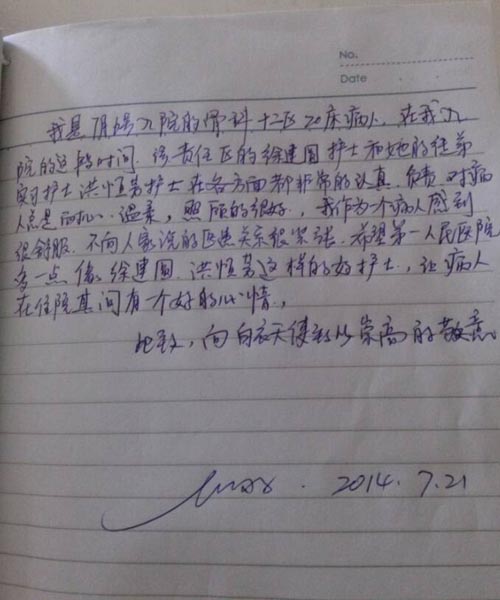 No.
Date
我是 入院的骨科十二区20床病人，在我入
院的这段时间．该责任区的徐建圆护士和她的徒弟
实习护士洪恒 护士在各方面都非常的认真．负责．对病
人总是 心．温柔，照顾的很好，我作为一个病人感到
很舒服．不向人家说的医患关系很紧张．希望第一人民医院
多一点像徐建圆．洪恒 这样的好护士，让病人
在住院其间有一个好的心情，
此致，向白衣天使致以崇高的敬意。
2014.7.21